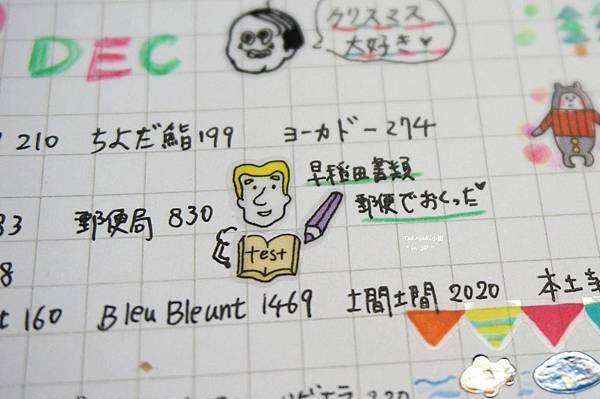 DEC
クリスマス
大好き♥
210 ちよだ鮨199 ヨーカドー274
早稲田書類
郵便でおくった♥
83 郵便局 830
test
8
t 160 Bleu Bleunt 1469 土間土間 2020 本土